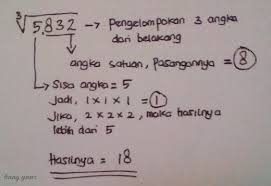 ³√5.832 → Pengelompokan 3 angka
dari belakang
angka satuan, pasangannya = 8
Sisa angka = 5
Jadi, 1 x 1 x 1 = 1
Jika, 2 x 2 x 2, maka hasilnya
lebih dari 5
Hasilnya = 18